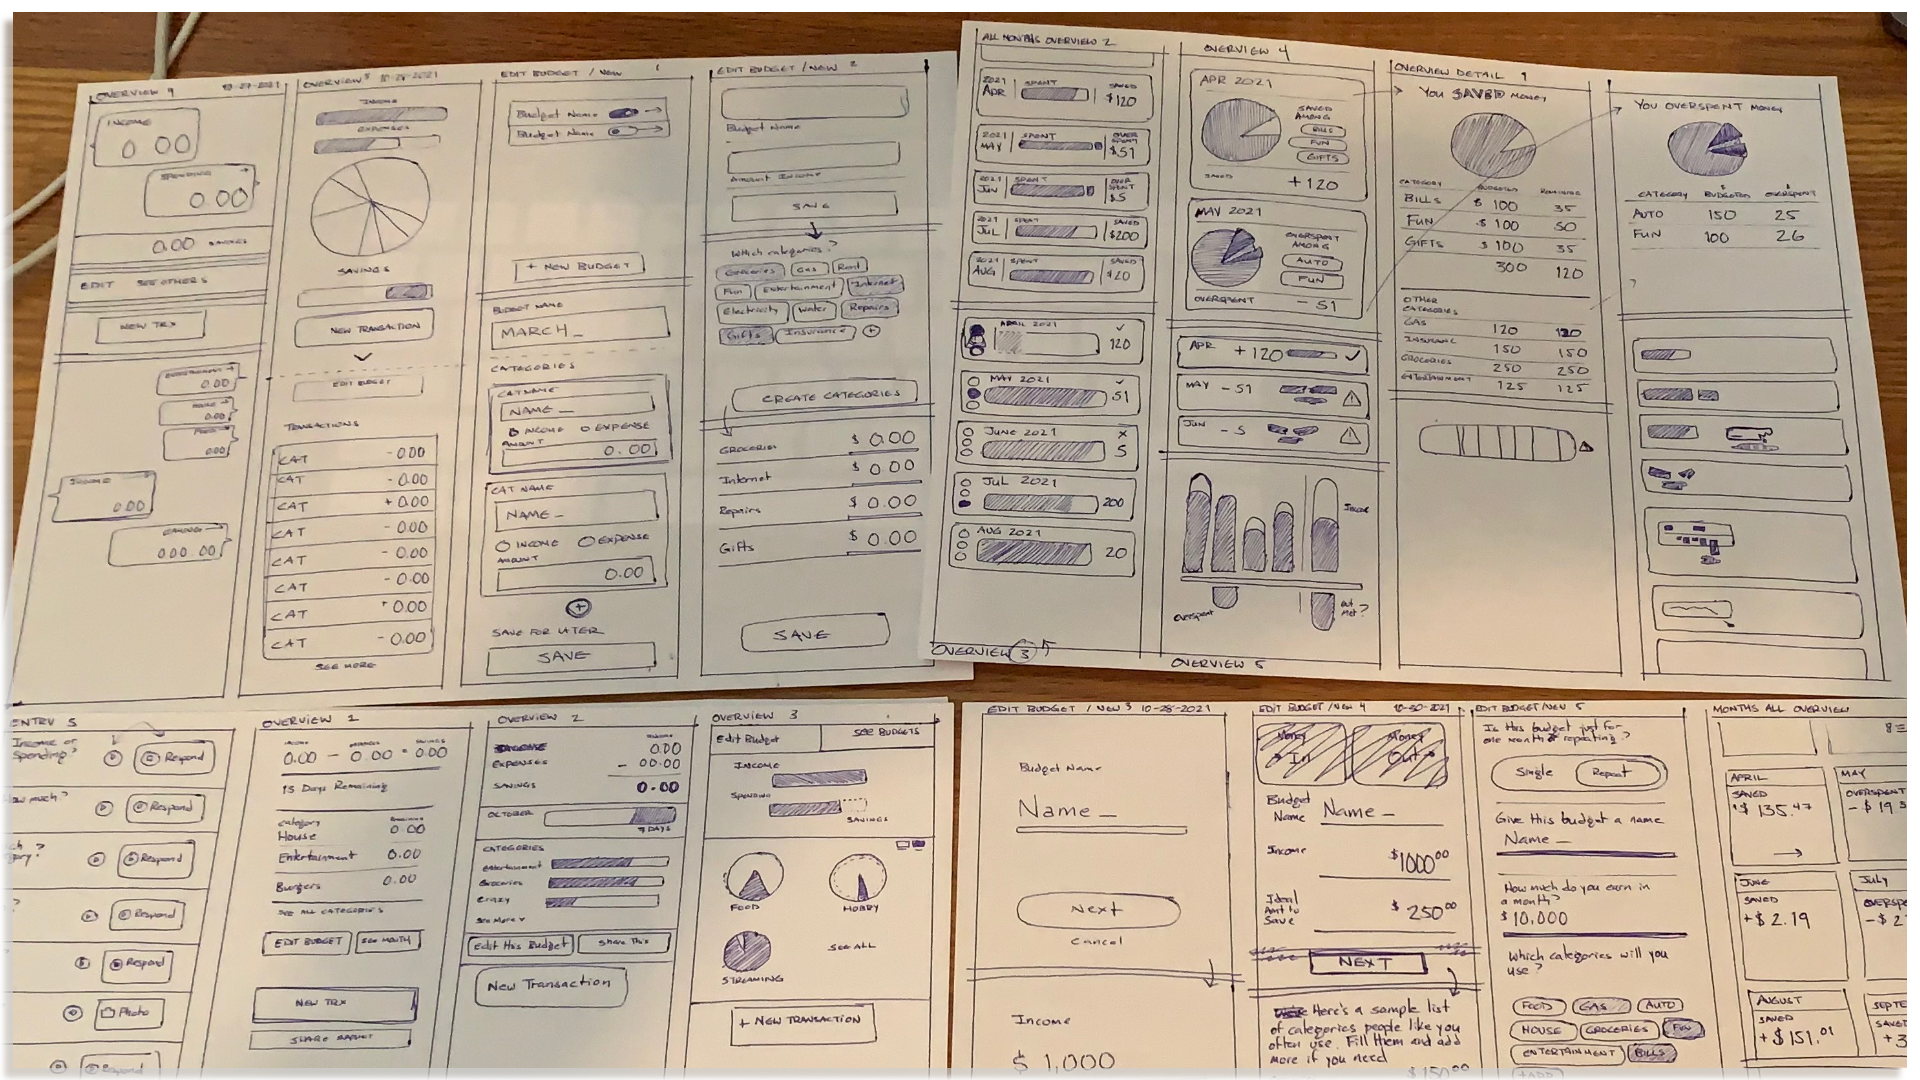 OVERVIEW 4
10-27-2021
INCOME
0 00
SPENDING
0 00
0.00 SAVINGS
EDIT SEE OTHERS
NEW TRX
ENTERTAINMENT →
0.00
0.00
0.00
INCOME
0.00
000.00
OVERVIEW 5 10-28-2021
INCOME
EXPENSES
SAVINGS
NEW TRANSACTION
EDIT BUDGET
TRANSACTIONS
CAT - 0.00
CAT - 0.00
CAT + 0.00
CAT - 0.00
CAT - 0.00
CAT - 0.00
CAT + 0.00
CAT - 0.00
SEE MORE
EDIT BUDGET / NEW 1
Budget Name →
Budget Name →
+ NEW BUDGET
BUDGET NAME
MARCH_
CATEGORIES
CAT NAME
NAME _
INCOME O EXPENSE
AMOUNT
0.00
CAT NAME
NAME _
O INCOME O EXPENSE
AMOUNT
0.00
+
SAVE FOR LATER
SAVE
EDIT BUDGET / NEW 2
Budget Name
Amount Income
SAVE
Which categories?
Groceries Gas Rent
Fun Entertainment Internet
Electricity Water Repairs
Gifts Insurance +
CREATE CATEGORIES
GROCERIES $ 0.00
Internet $ 0.00
Repairs $ 0.00
Gifts $ 0.00
SAVE
ALL MONTHS OVERVIEW 2
2021 SPENT SAVED
APR $120
2021 SPENT OVER SPENT
MAY $51
2021 SPENT OVER SPENT
JUN $5
2021 SPENT SAVED
JUL $200
2021 SPENT SAVED
AUG $20
APRIL 2021
120
MAY 2021
51
JUNE 2021
5
JUL 2021
200
AUG 2021
20
OVERVIEW 3
OVERVIEW 4
APR 2021
SAVED
AMONG
BILLS
FUN
GIFTS
SAVED +120
MAY 2021
OVERSPENT
AMONG
AUTO
FUN
OVERSPENT - 51
APR +120
MAY - 51
JUN - 5
INCOME
OVERSPENT
OVERVIEW 5
OVERVIEW DETAIL 1
YOU SAVED MONEY
CATEGORY BUDGETED REMAINING
BILLS $ 100 35
FUN $ 100 50
GIFTS $ 100 35
300 120
OTHER
CATEGORIES
GAS 120 120
INSURANCE 150 150
GROCERIES 250 250
ENTERTAINMENT 125 125
YOU OVERSPENT MONEY
CATEGORY BUDGETED OVERSPENT
AUTO 150 25
FUN 100 26
ENTRY 5
Income or
Spending?
Respond
Respond
Respond
Respond
Respond
Photo
Respond
OVERVIEW 1
0.00 - 0.00 = 0.00
15 Days Remaining
category
House 0.00
Entertainment 0.00
Burgers 0.00
SEE ALL CATEGORIES
EDIT BUDGET SEE MONTH
NEW TRX
SHARE BUDGET
OVERVIEW 2
INCOME 0.00
EXPENSES - 00.00
SAVINGS 0.00
OCTOBER
7 DAYS
CATEGORIES
entertainment
Groceries
Crazy
See More
Edit this Budget Share This
New Transaction
OVERVIEW 3
Edit Budget SEE BUDGETS
INCOME
Spending
SAVINGS
FOOD HOBBY
STREAMING SEE ALL
+ NEW TRANSACTION
EDIT BUDGET / NEW 3 10-28-2021
Budget Name
Name _
Next
Cancel
Income
$ 1,000
EDIT BUDGET / NEW 4 10-30-2021
Money Money
→ In Out →
Budget
Name Name _
Income $1000.00
Ideal
Amt to
Save $250.00
NEXT
Here's a sample list
of categories people like you
often use. Fill them and add
more if you need
$150.00
EDIT BUDGET/NEW 5
Is this budget just for
one month or repeating?
Single Repeat
Give this budget a name
Name _
How much do you earn in
a month?
$ 10,000
Which categories will you
use?
FOOD GAS AUTO
HOUSE GROCERIES FUN
ENTERTAINMENT BILLS
+ADD
MONTHS ALL OVERVIEW
APRIL
SAVED
+$ 135.47
→
MAY
OVERSPENT
JUNE
SAVED
+$ 2.19
July
AUGUST
SAVED
+$151.01